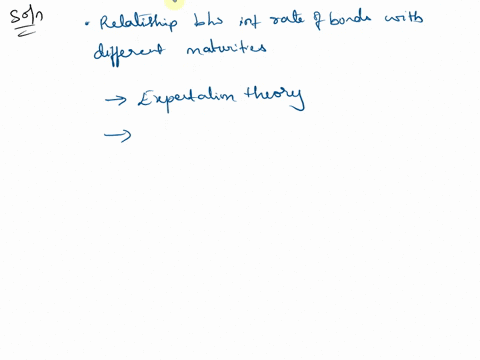 Soln
• Relatiship b/w int rate of bonds with
different maturities
→ Expectation theory
→